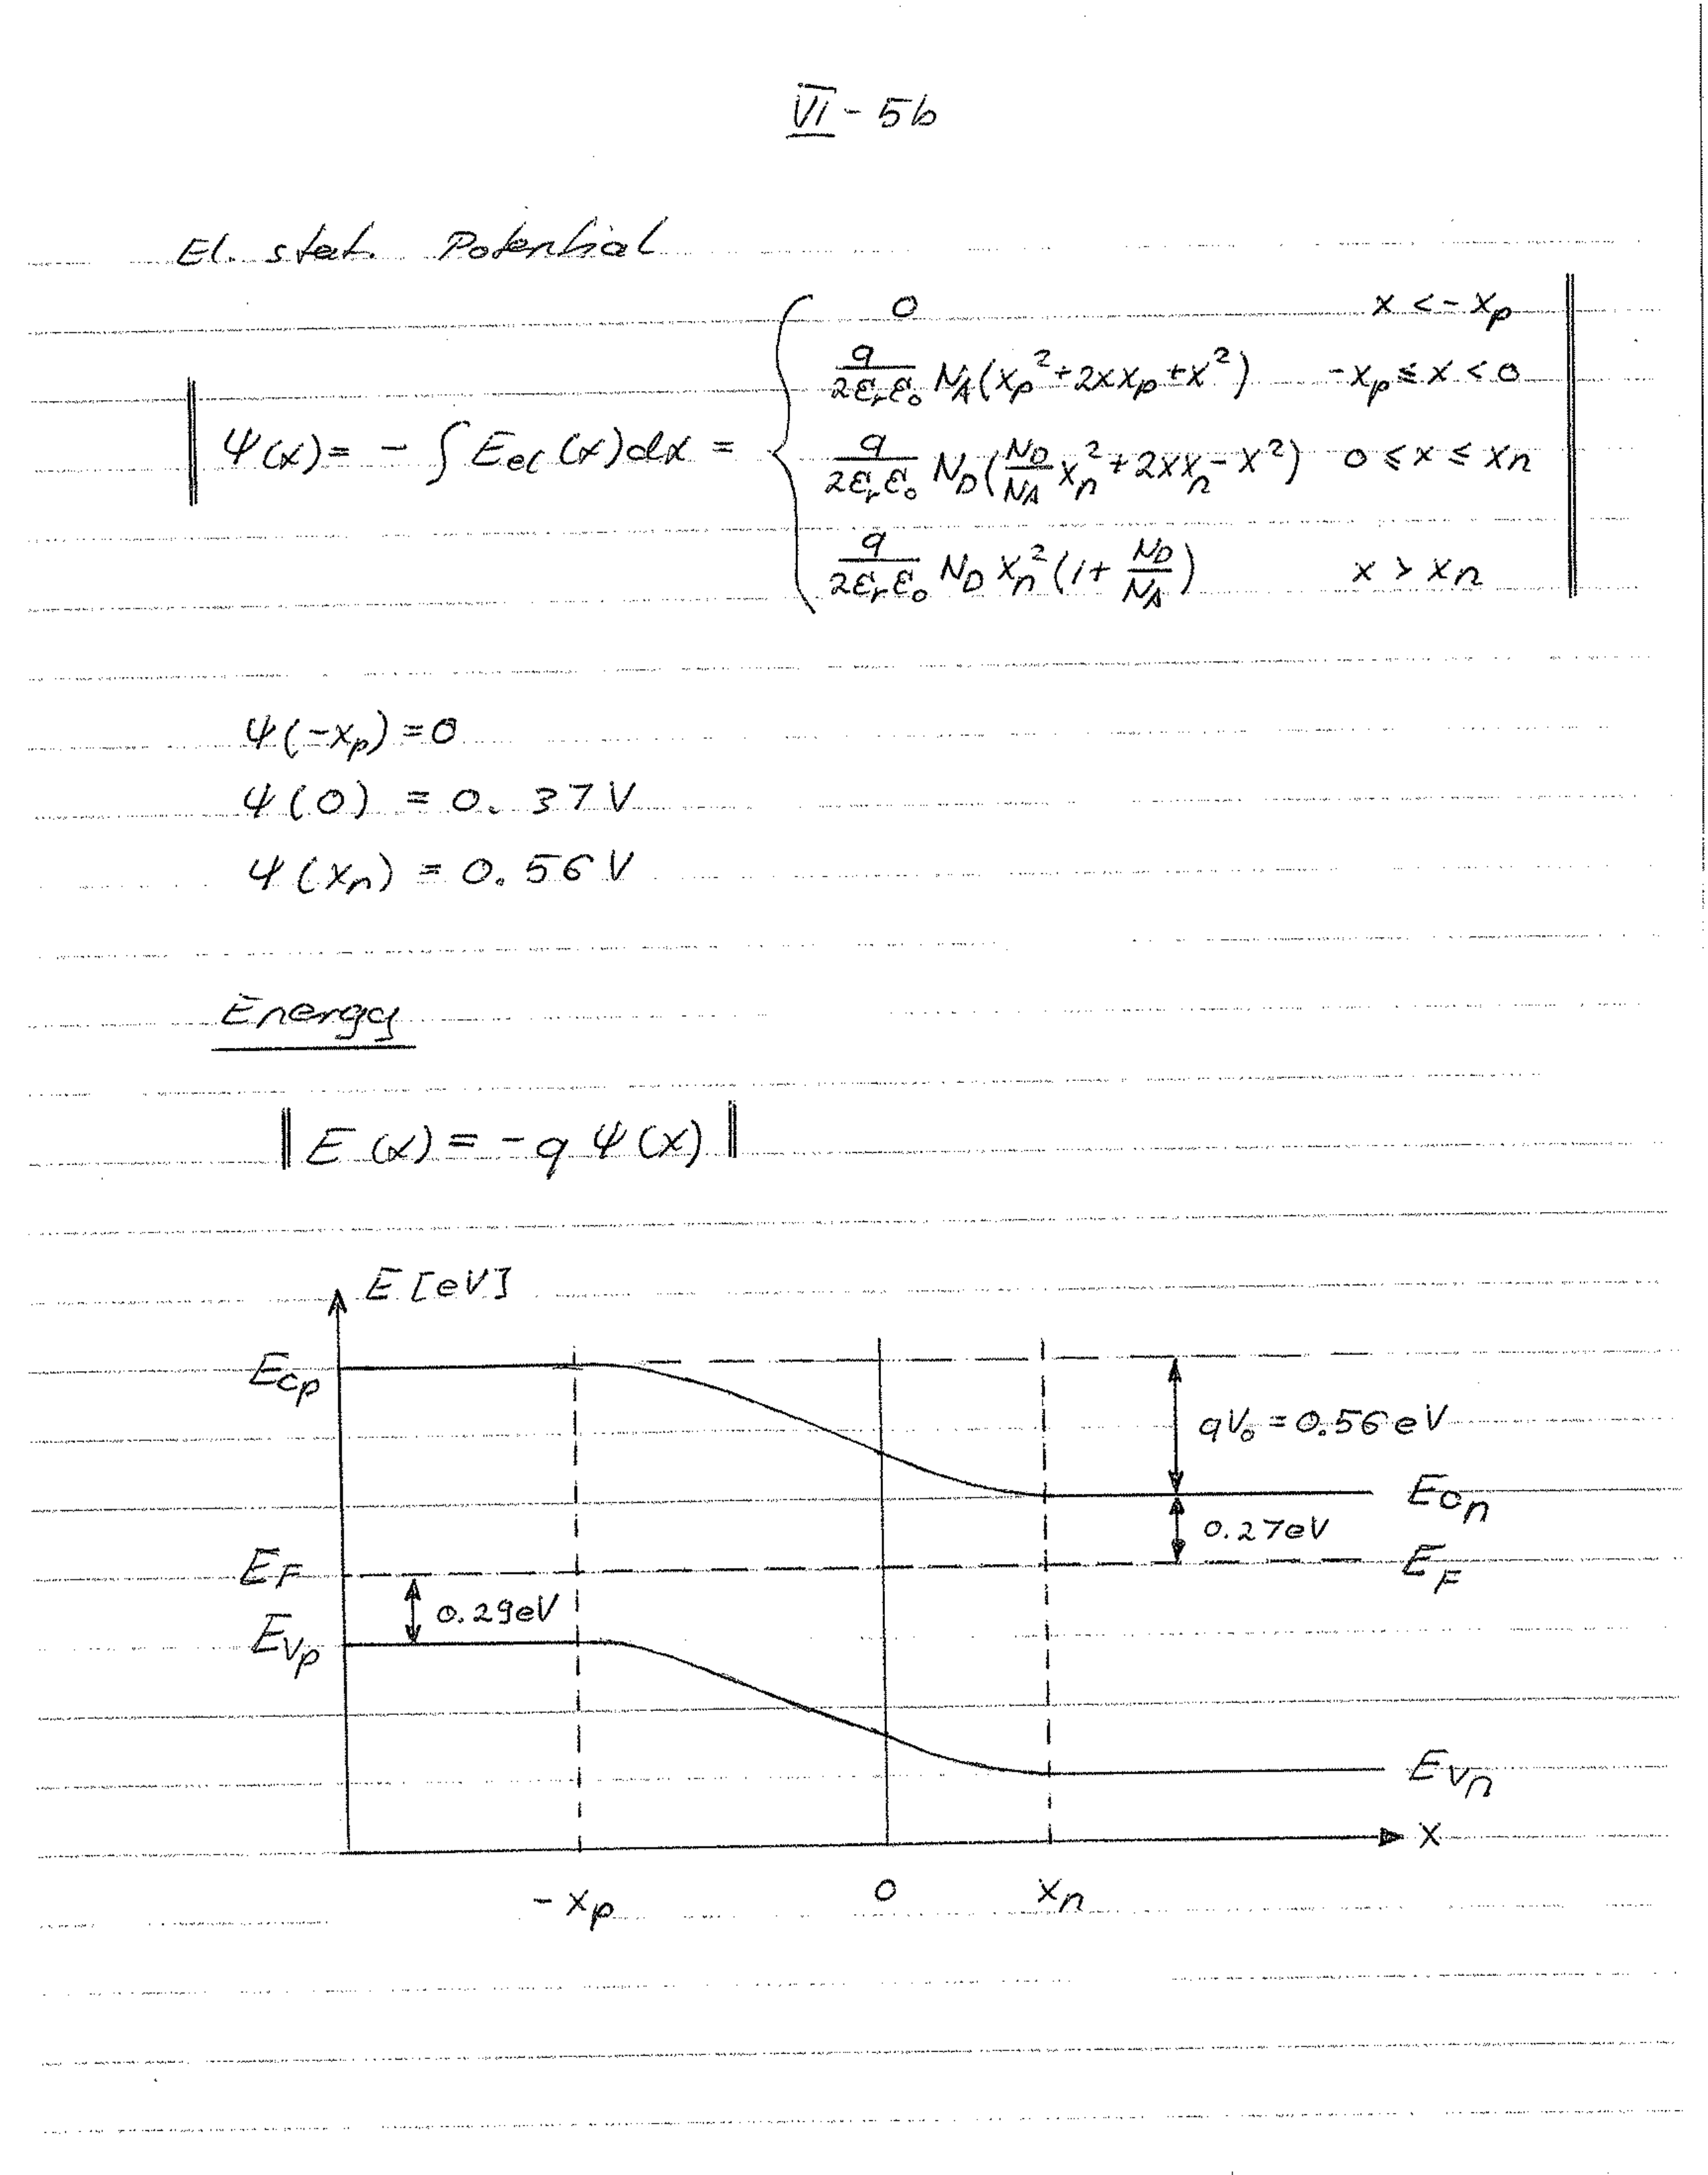 VI - 5b
El. stat. Potential
0    x < -xₚ
q/(2εᵣε₀) N_A(xₚ² + 2xxₚ + x²)    -xₚ ≤ x < 0
Ψ(x) = - ∫ E_el(x)dx =
q/(2εᵣε₀) N_D(N_D/N_A xₙ² + 2xxₙ - x²)    0 ≤ x ≤ xₙ
q/(2εᵣε₀) N_D xₙ²(1 + N_D/N_A)    x > xₙ
Ψ(-xₚ) = 0
Ψ(0) = 0.37 V
Ψ(xₙ) = 0.56 V
Energy
E(x) = -q Ψ(x)
E [eV]
E_Cp
qV₀ = 0.56 eV
E_Cn
0.27 eV
E_F    E_F
0.29 eV
E_Vp
E_Vn
x
-xₚ    0    xₙ